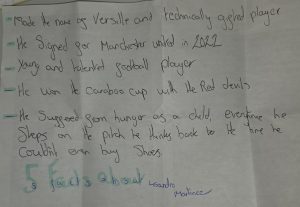 - Made the name as Versille and technically gifted player
- He Signed for Manchester united in 2022
- Young and talented football player
- He won the Carabao cup with the Red devils
- He Suffered from hunger as a child, everytime he
Steps on the pitch he thinks back to the time he
Couldnt even buy shoes.
5 facts about
Lisandro
Martinez